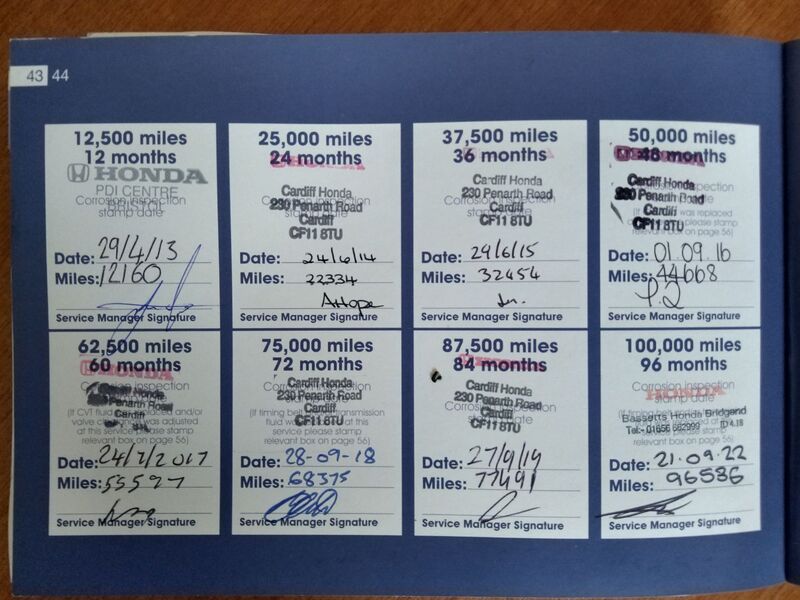 43 44
12,500 miles
12 months
HONDA
PDI CENTRE
BRISTOL
Corrosion inspection
stamp date
Date: 29/4/13
Miles: 12160
Service Manager Signature
25,000 miles
24 months
HONDA
Cardiff Honda
230 Penarth Road
Cardiff
CF11 8TU
Date: 24/6/14
Miles: 22334
AHope
Service Manager Signature
37,500 miles
36 months
Cardiff Honda
230 Penarth Road
Cardiff
CF11 8TU
Date: 29/6/15
Miles: 32454
Service Manager Signature
50,000 miles
48 months
Corrosion inspection
stamp date
Cardiff Honda
230 Penarth Road
Cardiff
CF11 8TU
was replaced
please stamp
relevant box on page 56)
Date: 01.09.16
Miles: 44668
Service Manager Signature
62,500 miles
60 months
HONDA
Corrosion inspection
Penarth Road
Cardiff
(If CVT fluid was replaced and/or
valve clearance was adjusted
at this service please stamp
relevant box on page 56)
Date: 24/7/2017
Miles: 55597
Service Manager Signature
75,000 miles
72 months
Corrosion inspection
stamp date
Cardiff Honda
230 Penarth Road
Cardiff
CF11 8TU
(If timing belt or transmission
fluid was replaced at this
service please stamp
relevant box on page 56)
Date: 28-09-18
Miles: 68375
Service Manager Signature
87,500 miles
84 months
Cardiff Honda
230 Penarth Road
Cardiff
CF11 8TU
Date: 27/9/19
Miles: 77491
Service Manager Signature
100,000 miles
96 months
Corrosion inspection
HONDA
stamp date
Bassetts Honda Bridgend
Tel:- 01656 662999 ID 4.18
service please stamp
relevant box on page 56)
Date: 21.09.22
Miles: 96586
Service Manager Signature